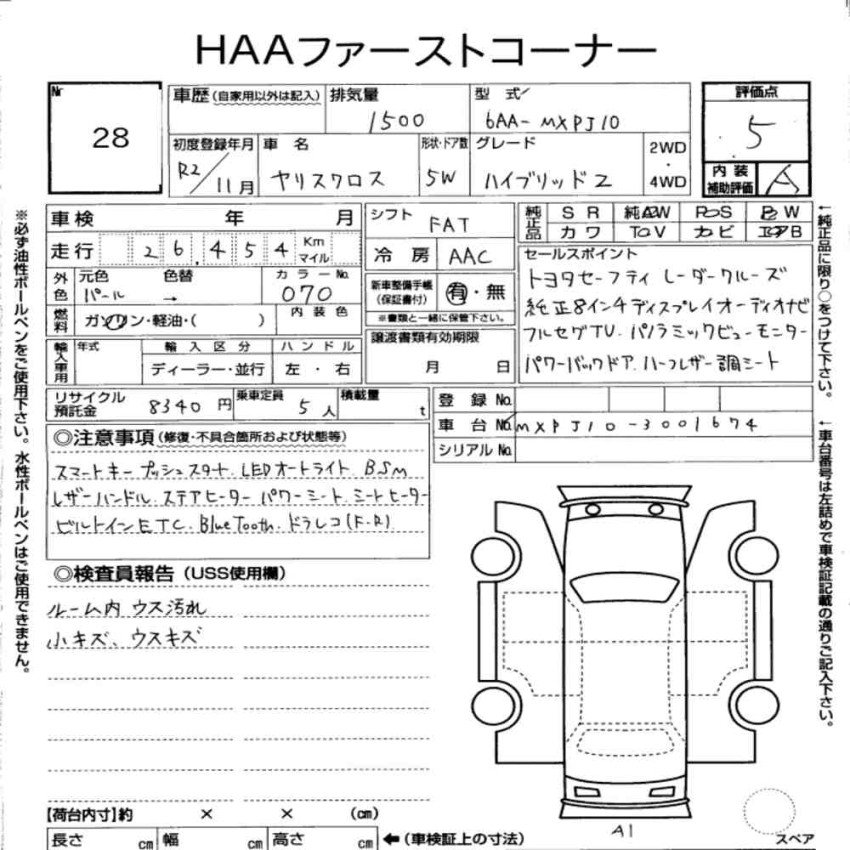 HAAファーストコーナー
Nr 28
車歴(自家用以外は記入) 排気量 1500 型式 6AA-MXPJ10 評価点 5
初度登録年月 R2/11月 車名 ヤリスクロス 形状・ドア数 5W グレード ハイブリッドZ 2WD・4WD 内装補助評価 A
車検 年 月 シフト FAT 純正品 SR 純AW PS PW
冷房 AAC カワ TV ナビ エアB
走行 26,454 Km マイル
外色 元色 パール 色替 → カラーNo. 070 新車整備手帳(保証書付) 有・無
※書類と一緒に保管下さい。
燃料 ガソリン・軽油・( ) 内装色
セールスポイント
トヨタセーフティ レーダークルーズ
純正8インチディスプレイオーディオナビ
フルセグTV.パノラミックビューモニター
パワーバックドア.ハーフレザー調シート
譲渡書類有効期限 月 日
輸入車用 年式 輸入区分 ディーラー・並行 ハンドル 左・右
リサイクル預託金 8340円 乗車定員 5人 積載量 t
登録No.
車台No. MXPJ10-3001674
シリアルNo.
◎注意事項(修復・不具合箇所および状態等)
スマートキー プッシュスタート.LEDオートライト BSM
レザーハンドル.ステアヒーター パワーシート.シートヒーター
ビルトインETC.Bluetooth.ドラレコ(F.R)
◎検査員報告(USS使用欄)
ルーム内 ウス汚れ
小キズ、ウスキズ
【荷台内寸】約 × × (cm)
長さ cm 幅 cm 高さ cm ←(車検証上の寸法)
A1
スペア
※必ず油性ボールペンをご使用下さい。水性ボールペンはご使用できません。
←純正品に限り○をつけて下さい。
←車台番号は左詰めで車検証記載の通りご記入下さい。